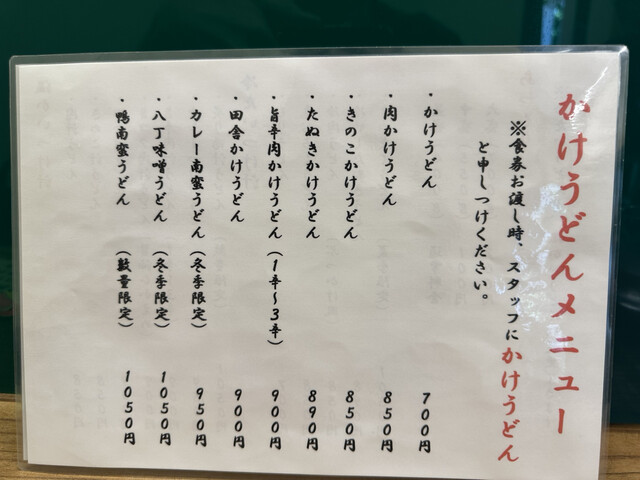 かけうどんメニュー
※食券お渡し時、スタッフにかけうどん
と申しつけください。
・かけうどん 700円
・肉かけうどん 850円
・きのこかけうどん 850円
・たぬきかけうどん 890円
・旨辛肉かけうどん(1辛~3辛) 900円
・田舎かけうどん 900円
・カレー南蛮うどん(冬季限定) 950円
・八丁味噌うどん(冬季限定) 1050円
・鴨南蛮うどん(数量限定) 1050円